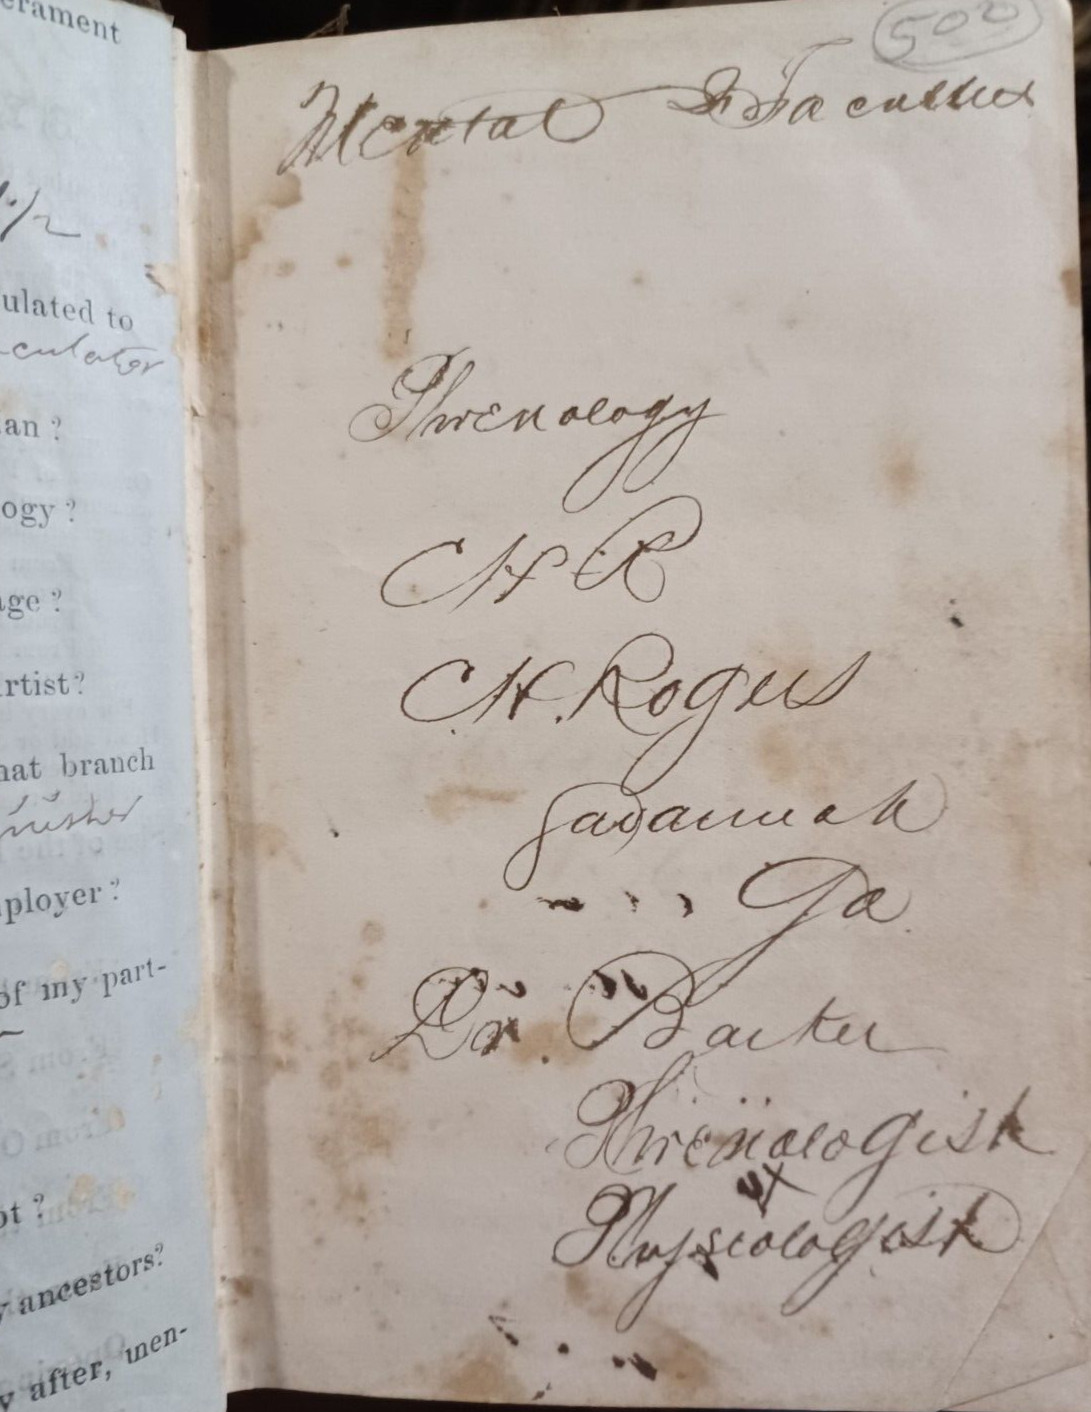 erament
ulated to
an ?
ogy ?
age ?
rtist?
hat branch
ployer ?
of my part-
ot ?
y ancestors?
y after, men-
500
Mental Faculties
Phrenology
H R
H. Rogers
Savannah
Ga
Dr. Barker
Phrenologist
Physiologist